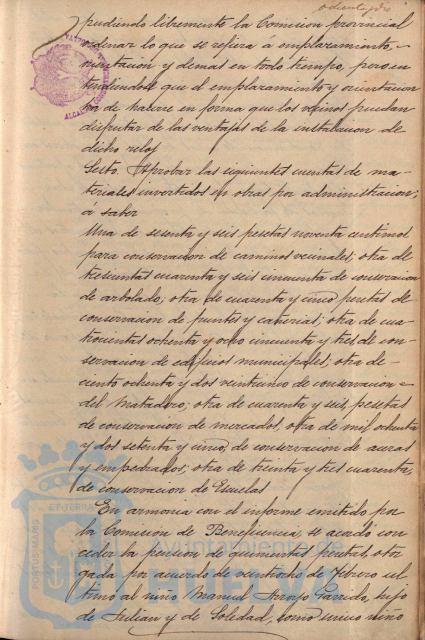 pudiendo libremente la Comision provincial
ordenar lo que se refiera á emplazamiento,
mentacion y demas en todo tiempo, pero en
tendiendose que el emplazamiento y orientacion
ha de hacerse en forma que los vecinos puedan
disfrutar de las ventajas de la instalacion de
dicho reloj
Sesto. Aprobar las siguientes cuentas de ma-
teriales invertidos en obras por administracion;
á saber
Una de sesenta y seis pesetas noventa centimos
para conservacion de caminos vecinales; otra de
trescientas cuarenta y seis cincuenta de conservacion
de arbolado; otra de cuarenta y cinco pesetas de
conservacion de puentes y cañerias; otra de cua-
trocientas ochenta y ocho cincuenta y tres de con-
servacion de edificios municipales; otra de
ciento ochenta y dos veinticinco de conservacion
del Matadero; otra de cuarenta y seis pesetas
de conservacion de mercados, otra de mil ochenta
y dos setenta y cinco, de conservacion de aceras
y empedrados; otra de treinta y tres cuarenta,
de conservacion de Escuelas
En armonia con el informe emitido por
la Comision de Beneficencia, se acordó con-
ceder la pension de quinientas pesetas, otor
gada por acuerdo de veintiocho de febrero ul
timo al niño Manuel Arroyo Garrido, hijo
de Julian y de Soledad, como unico niño
PORTUS MARIS
ET TERRA